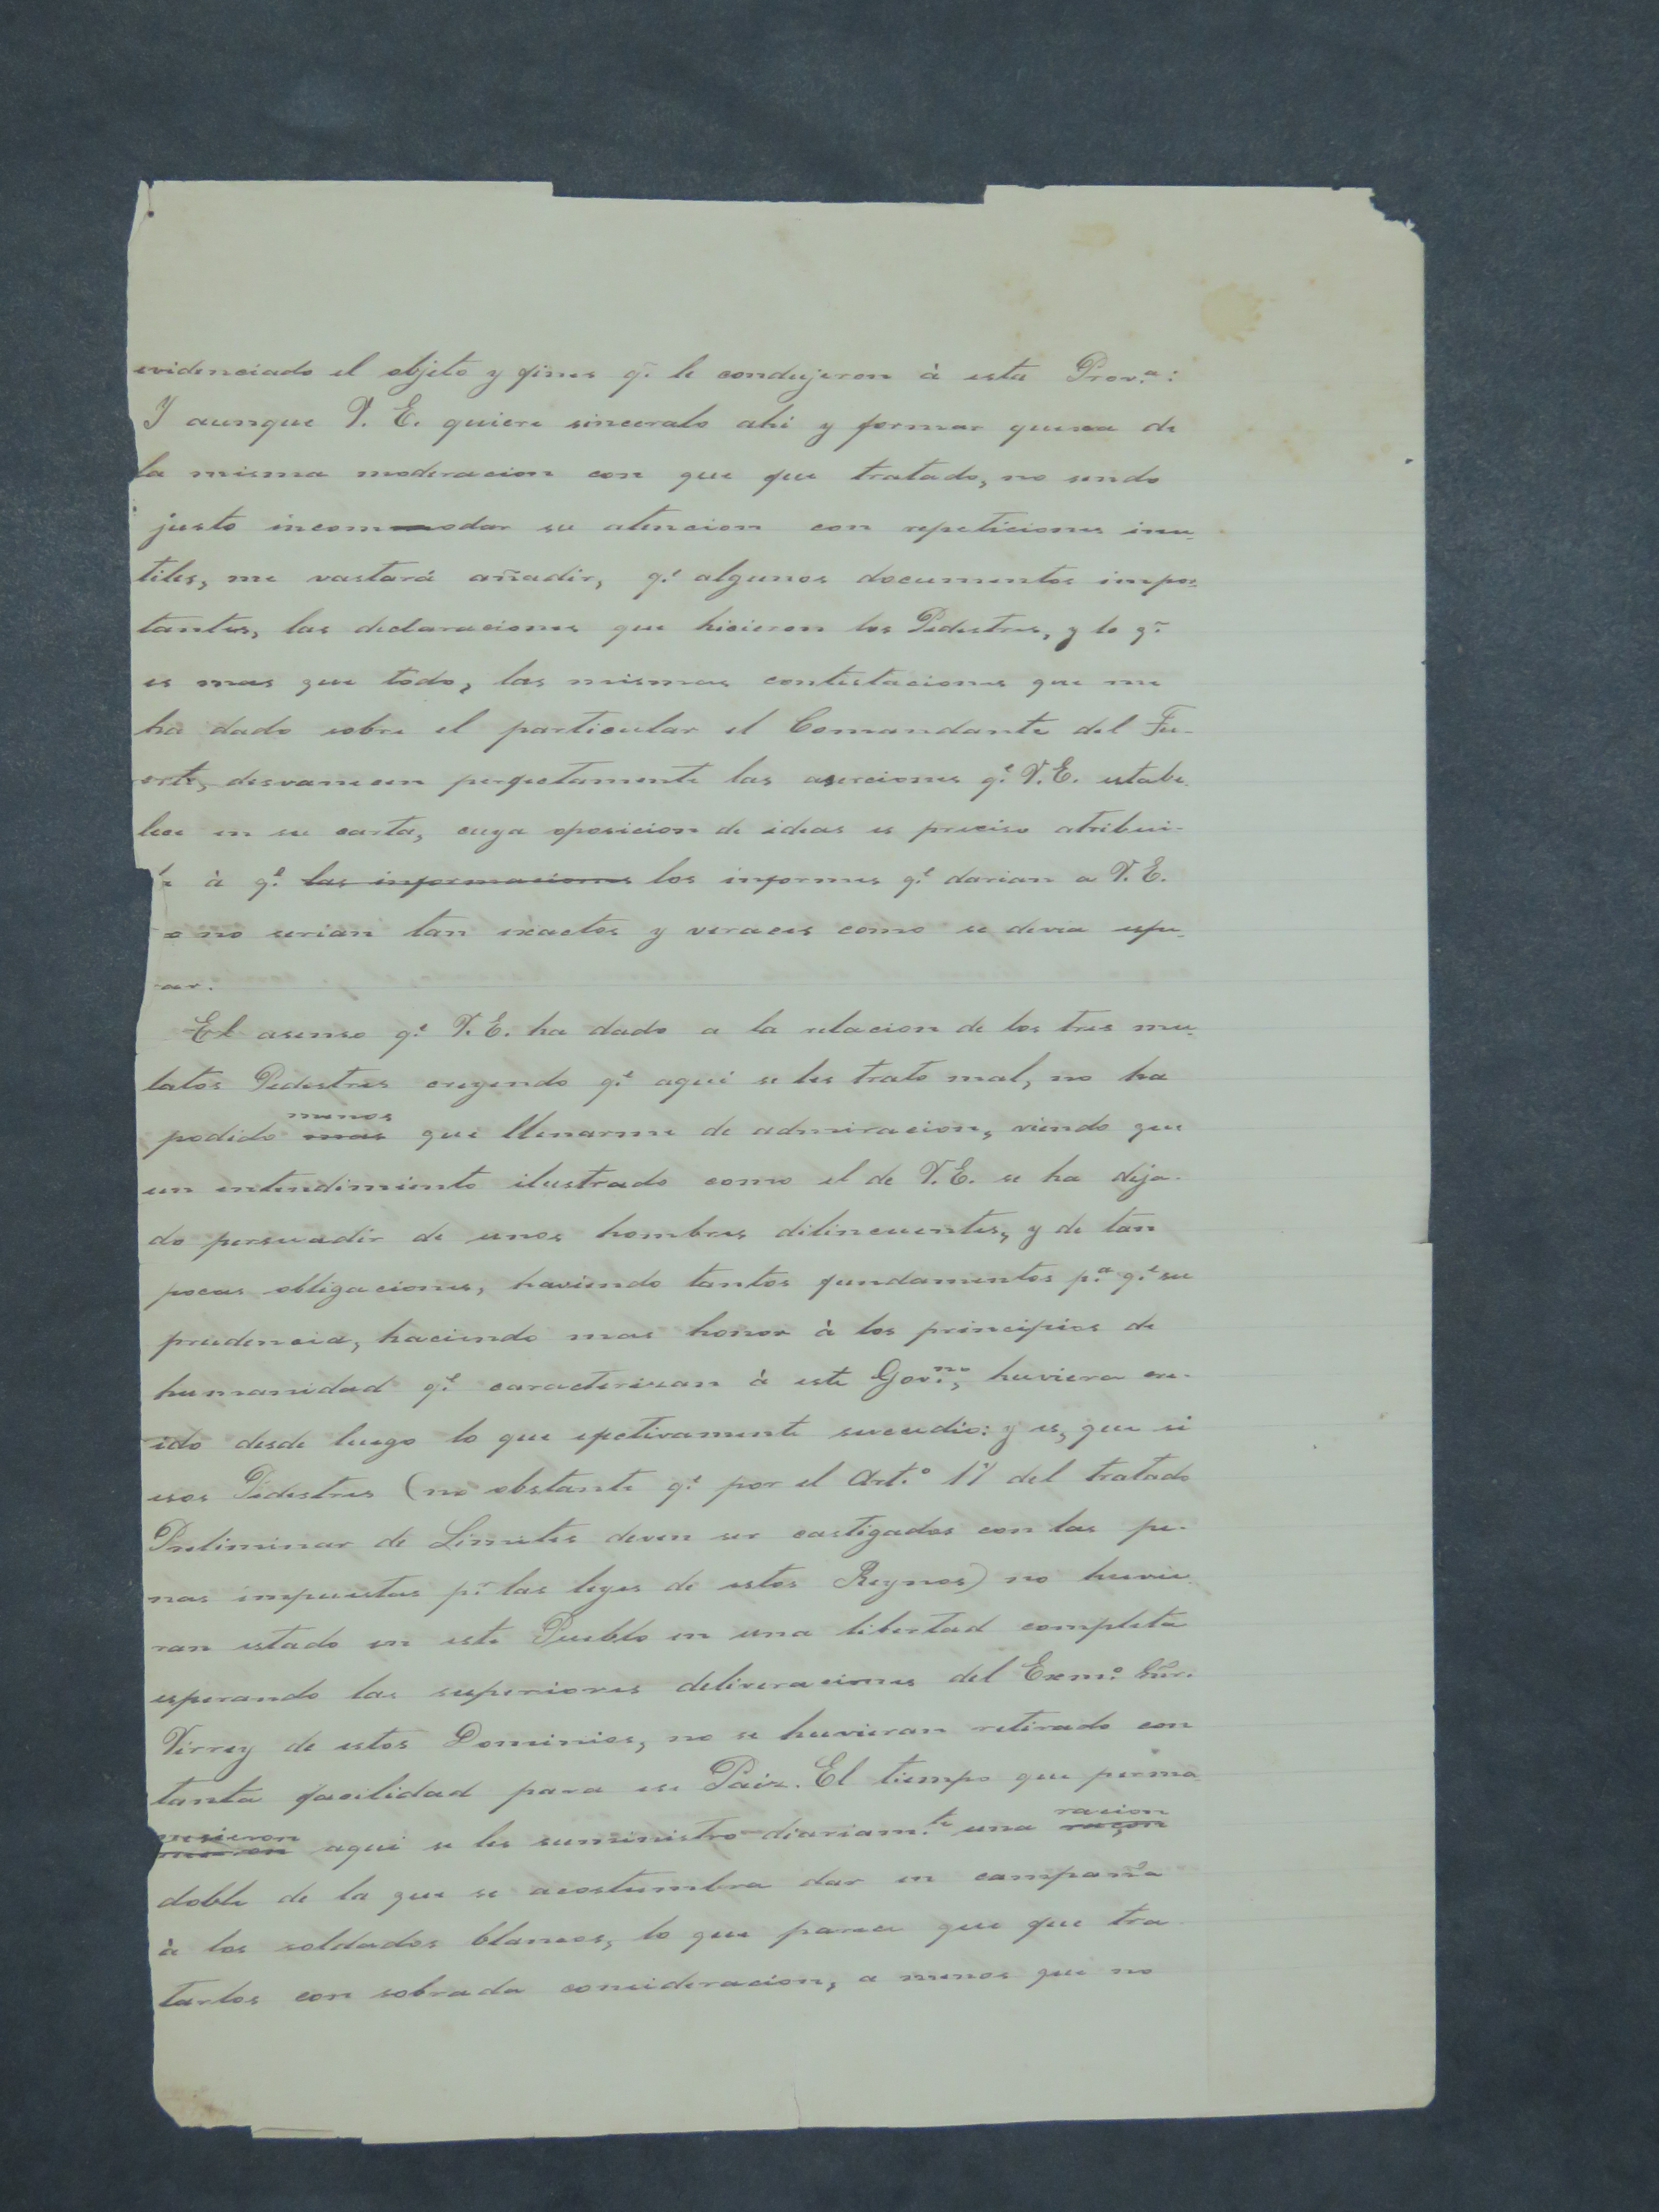 evidenciado el objeto y fines q.e le condujeron à esta Prov.a:
Y aunque V. E. quiere sinceralo ahi y formar quexa de
la misma moderacion con que fue tratado, no sendo
justo incommodar su atencion con repeticiones inu-
tiles, me vastará añadir, q.e algunos documentos impor-
tantes, las declaraciones que hicieron los Pedestres, y lo q.e
es mas que todo, las mismas contestaciones que me
ha dado sobre el particular el Comandante del Fu-
erte, desvanecen perfectamente las aserciones q.e V.E. estabe-
lece en su carta, cuya oposicion de ideas es preciso atribui-
r à q.e las informaciones los informes q.e darian a V.E.
no serian tan exactos y veraces como se devia espe-
rar.
El asenso q.e V.E. ha dado a la relacion de los tres mu-
latos Pedestres creyendo q.e aqui se les trato mal, no ha
menos
podido mas que llenarme de admiracion, viendo que
un entendimiento ilustrado como el de V.E. se ha deja-
do persuadir de unos hombres dilincuentes, y de tan
pocas obligaciones, haviendo tantos fundamentos p.a q.e su
prudencia, haciendo mas honor à los principios de
humanidad q.e caracterisan à este Gov.no, huviera cre-
ido desde luego lo que efetivamente sucudio: y es, que si
esos Pedestres (no obstante q.e por el Art.o 17 del tratado
Preliminar de Limites deven ser castigados con las pe-
nas impuestas p.r las leyes de estos Reynos) no huvie-
ran estado en este Pueblo en una libertad completa
esperando las superiores deliveraciones del Exm.o Snr.
Virrey de estos Dominios, no se huvieran retirado con
tanta facilidad para ese Paiz. El tiempo que perma-
necieron racion
aqui se les suministro diariam.te una raçon
doble de la que se acostumbra dar en campaña
à los soldados blancos, lo que parece que fue tra-
tarlos con sobrada concideracion, a menos que no